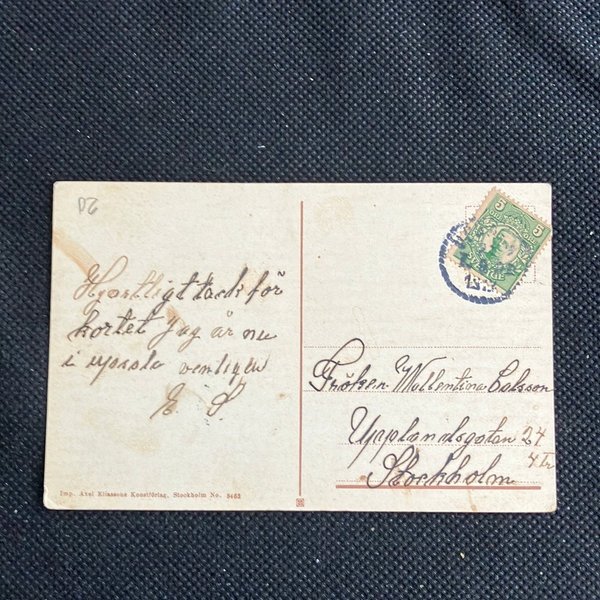 20
Hjärtligt tack för
kortet Jag är nu
i upsala venligen
E S
5 5
Fröken Wallentina Carlsson
Upplandsgatan 24
4 tr
Stockholm
Imp. Axel Eliassons Konstförlag, Stockholm No. 3463